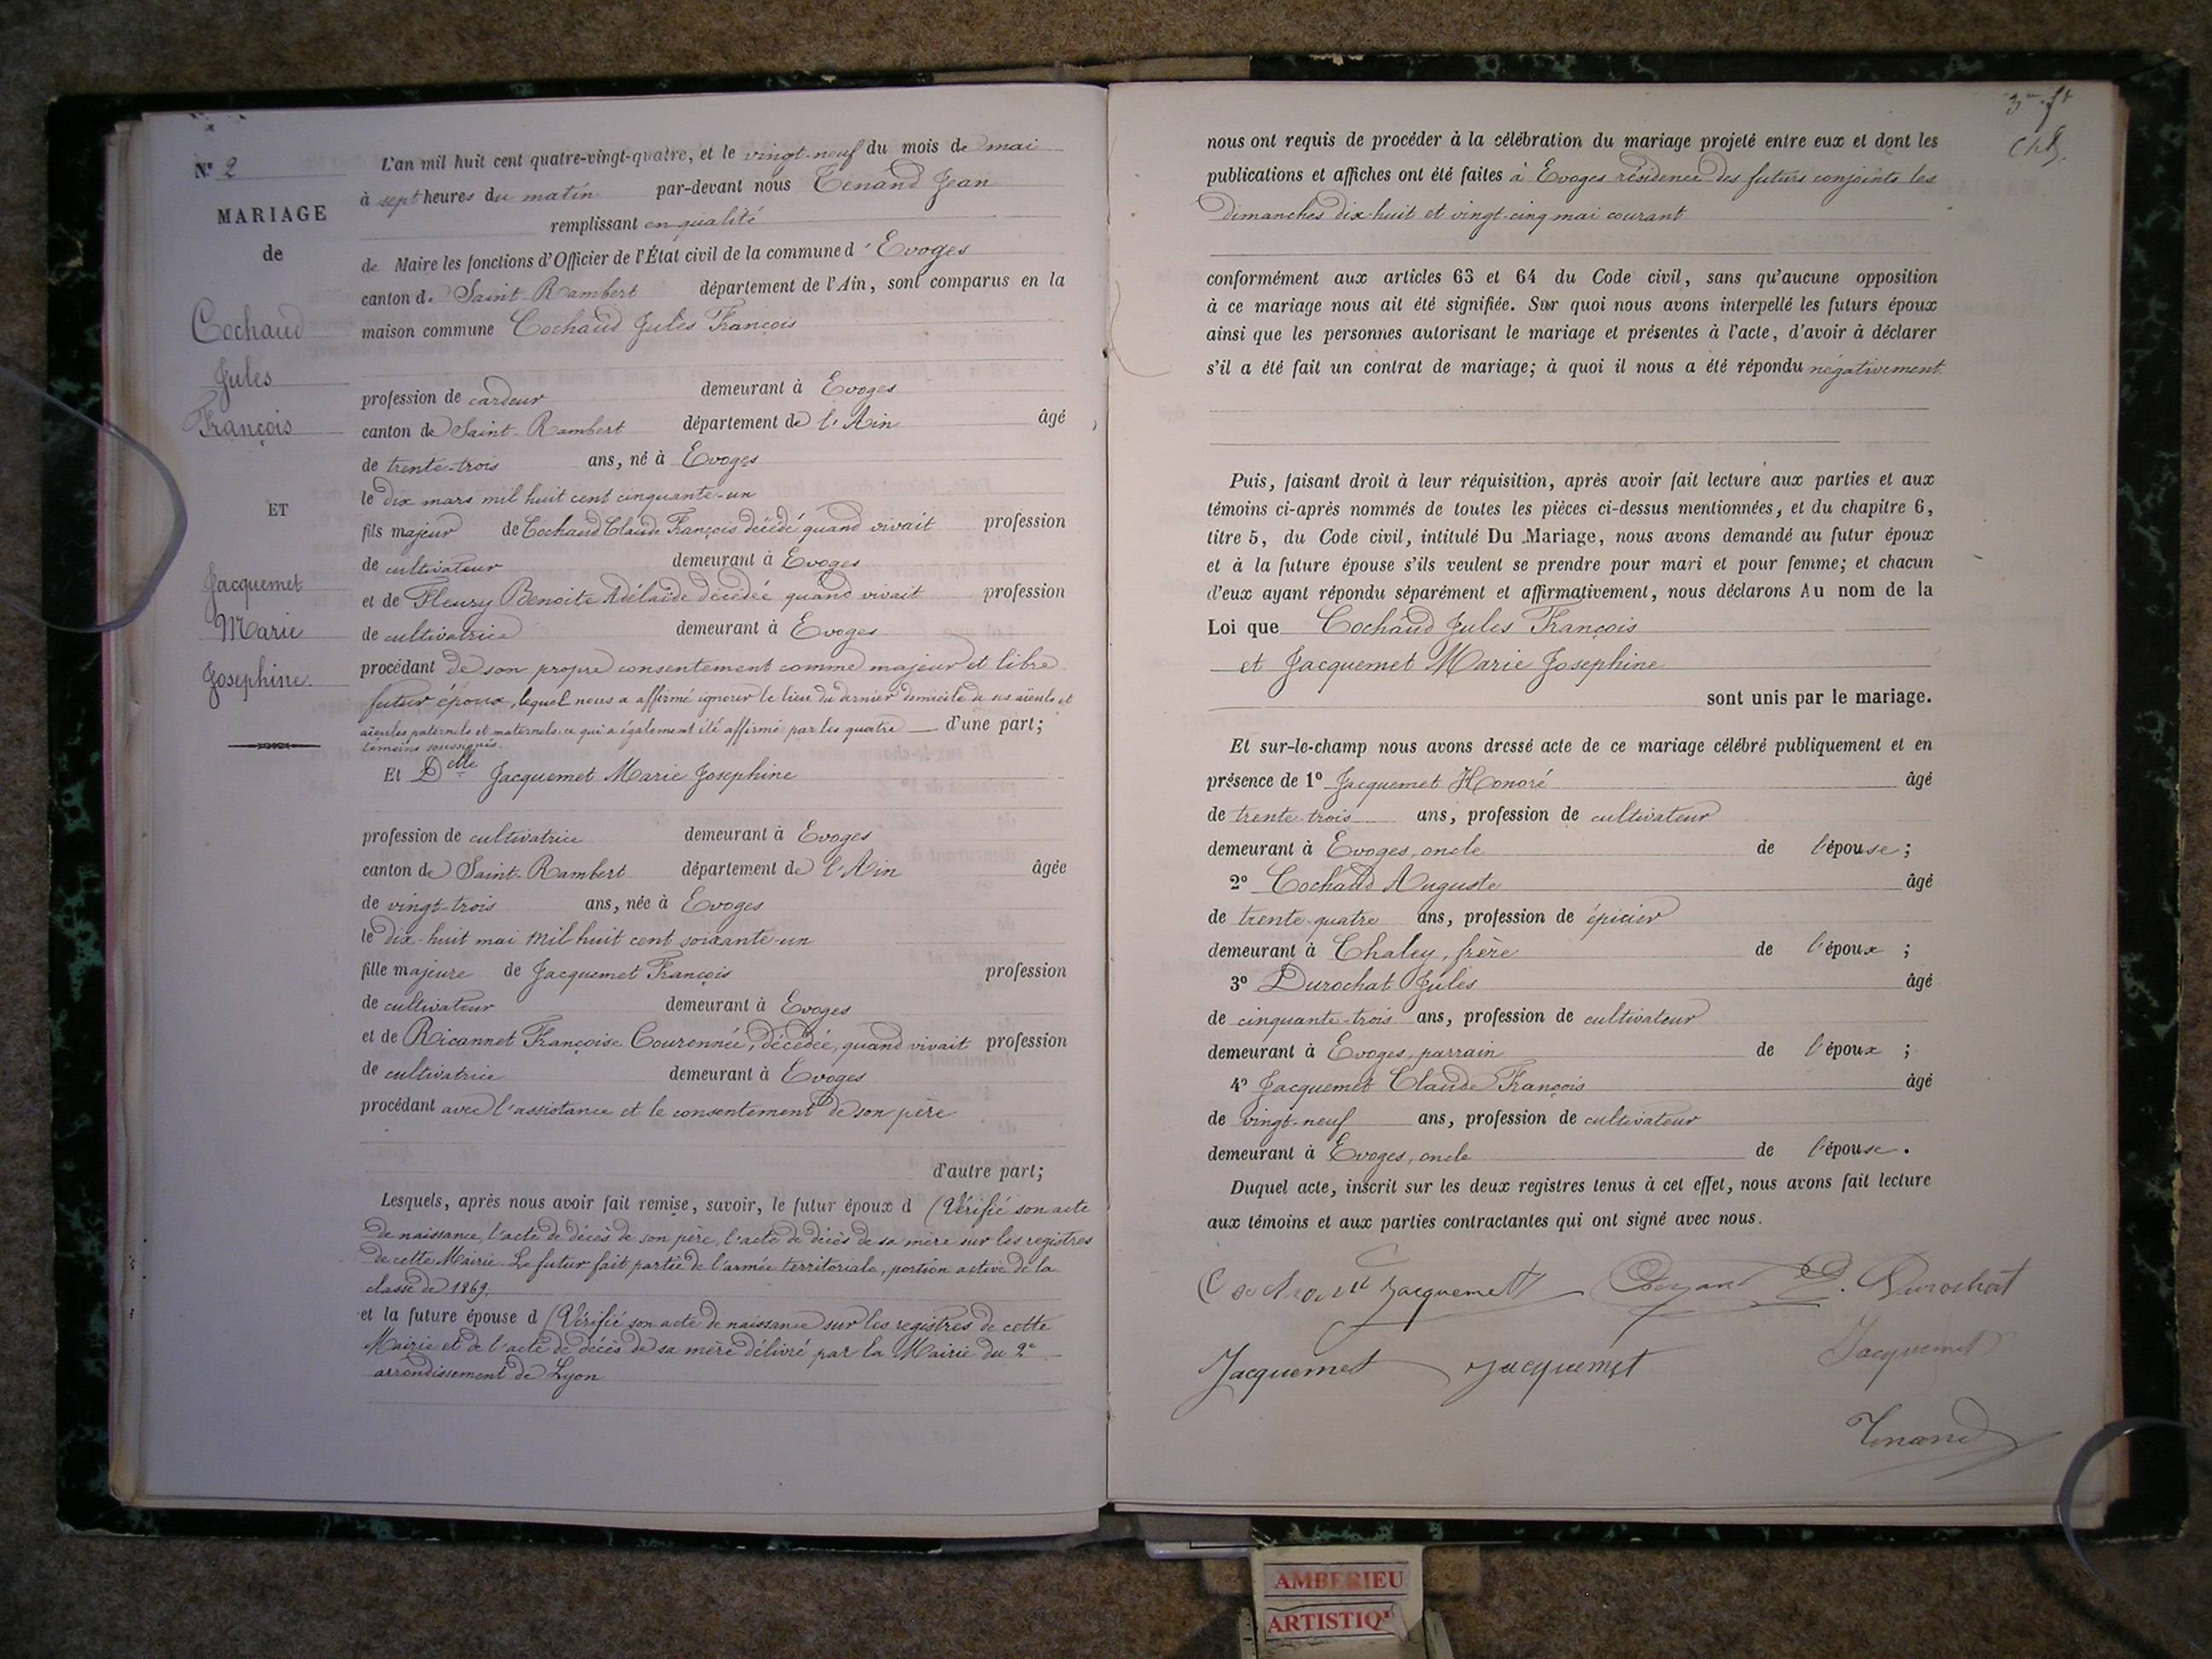 N° 2
MARIAGE
de
Cochaud
Jules
François
ET
Jacquemet
Marie
Josephine.
L'an mil huit cent quatre-vingt-quatre, et le vingt-neuf du mois de mai
à sept heures du matin par-devant nous Tenand Jean
remplissant en qualité
de Maire les fonctions d'Officier de l'État civil de la commune d'Evoges
canton de Saint-Rambert département de l'Ain, sont comparus en la
maison commune Cochaud Jules François
profession de cardeur demeurant à Evoges
canton de Saint-Rambert département de l'Ain âgé
de trente-trois ans, né à Evoges
le dix mars mil huit cent cinquante-un
fils majeur de Cochaud Claude François décédé quand vivait profession
de cultivateur demeurant à Evoges
et de Fleury Benoite Adélaïde décédée quand vivait profession
de cultivatrice demeurant à Evoges
procédant de son propre consentement comme majeur et libre
futur époux, lequel nous a affirmé ignorer le lieu du dernier domicile de ses aïeuls et
aïeules paternels et maternels ce qui a également été affirmé par les quatre d'une part;
témoins soussignés.
Et Delle Jacquemet Marie Josephine
profession de cultivatrice demeurant à Evoges
canton de Saint-Rambert département de l'Ain âgée
de vingt-trois ans, née à Evoges
le dix-huit mai mil huit cent soixante-un
fille majeure de Jacquemet François profession
de cultivateur demeurant à Evoges
et de Ricannet Françoise Couronnée, décédée, quand vivait profession
de cultivatrice demeurant à Evoges
procédant avec l'assistance et le consentement de son père
d'autre part;
Lesquels, après nous avoir fait remise, savoir, le futur époux d (Vérifié son acte
de naissance, l'acte de décès de son père, l'acte de décès de sa mère sur les registres
de cette Mairie. Le futur fait partie de l'armée territoriale, portion active de la
classe de 1869.
et la future épouse d (Vérifié son acte de naissance sur les registres de cette
Mairie et de l'acte de décès de sa mère délivré par la Mairie du 2e
arrondissement de Lyon
nous ont requis de procéder à la célébration du mariage projeté entre eux et dont les
publications et affiches ont été faites à Evoges résidence des futurs conjoints les
Dimanches dix-huit et vingt-cinq mai courant
conformément aux articles 63 et 64 du Code civil, sans qu'aucune opposition
à ce mariage nous ait été signifiée. Sur quoi nous avons interpellé les futurs époux
ainsi que les personnes autorisant le mariage et présentes à l'acte, d'avoir à déclarer
s'il a été fait un contrat de mariage; à quoi il nous a été répondu négativement.
Puis, faisant droit à leur réquisition, après avoir fait lecture aux parties et aux
témoins ci-après nommés de toutes les pièces ci-dessus mentionnées, et du chapitre 6,
titre 5, du Code civil, intitulé Du Mariage, nous avons demandé au futur époux
et à la future épouse s'ils veulent se prendre pour mari et pour femme; et chacun
d'eux ayant répondu séparément et affirmativement, nous déclarons Au nom de la
Loi que Cochaud Jules François
et Jacquemet Marie Josephine
sont unis par le mariage.
Et sur-le-champ nous avons dressé acte de ce mariage célébré publiquement et en
présence de 1° Jacquemet Honoré âgé
de trente-trois ans, profession de cultivateur
demeurant à Evoges, oncle de l'épouse;
2° Cochaud Auguste âgé
de trente-quatre ans, profession de épicier
demeurant à Chaley, frère de l'époux;
3° Durochat Jules âgé
de cinquante-trois ans, profession de cultivateur
demeurant à Evoges, parrain de l'époux;
4° Jacquemet Claude François âgé
de vingt-neuf ans, profession de cultivateur
demeurant à Evoges, oncle de l'épouse.
Duquel acte, inscrit sur les deux registres tenus à cet effet, nous avons fait lecture
aux témoins et aux parties contractantes qui ont signé avec nous.
Jacquemet Durochat
Jacquemet Jacquemet Jacquemet
Tenand
AMBERIEU
ARTISTIQ